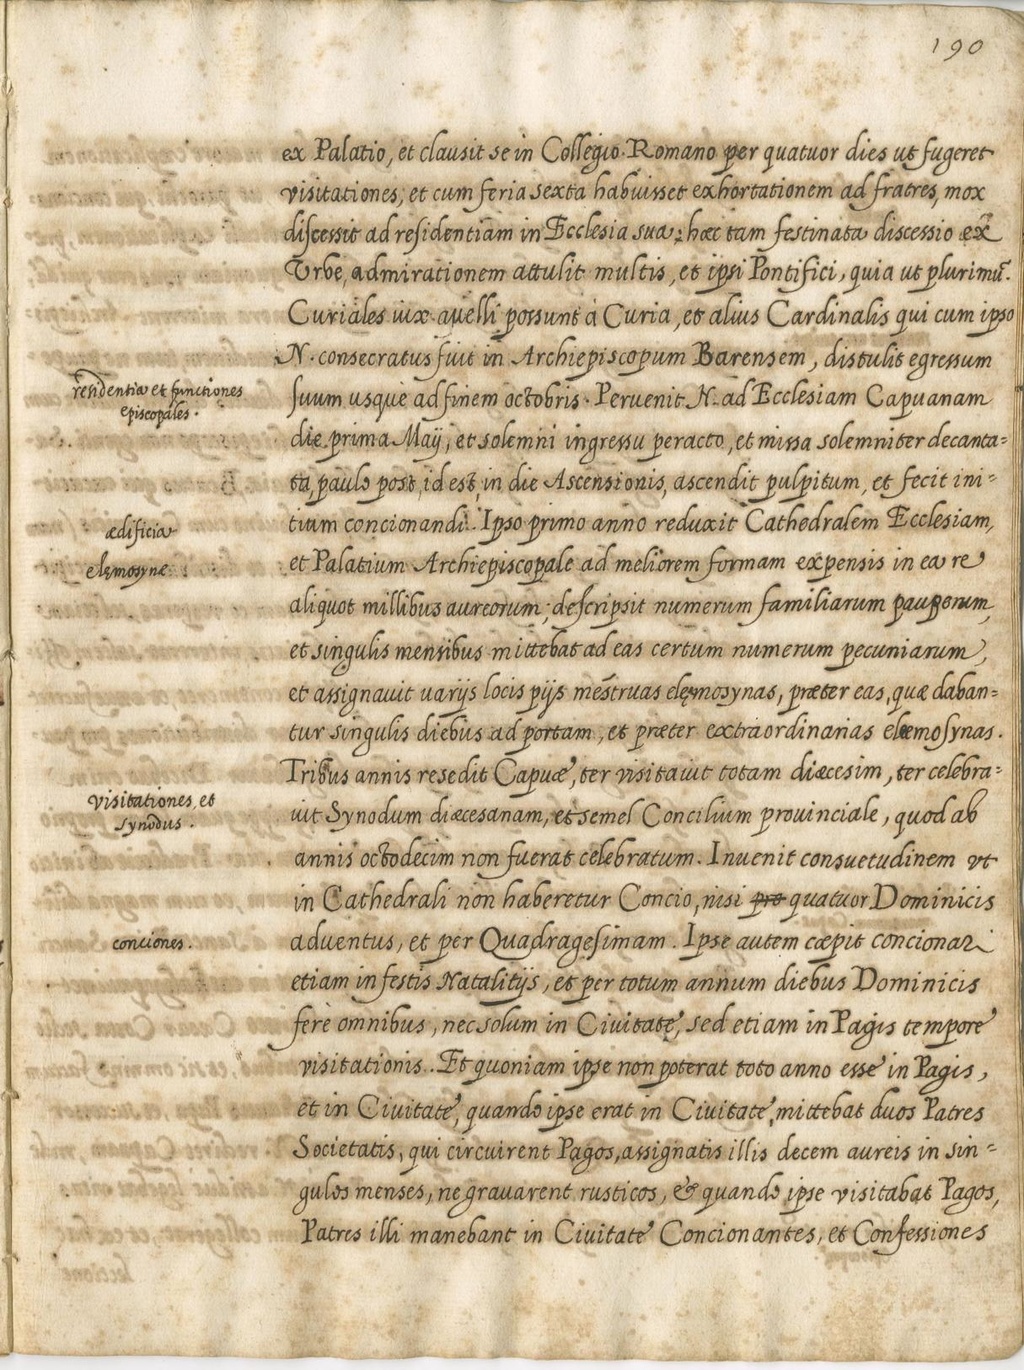 190
ex Palatio, et clausit se in Collegio Romano per quatuor dies ut fugeret
visitationes, et cum feria sexta habuisset exhortationem ad fratres, mox
discessit ad residentiam in Ecclesia sua; hæc tam festinata discessio ex
Vrbe, admirationem attulit multis, et ipsi Pontifici, quia ut plurimū
Curiales uix auelli possunt à Curia, et alius Cardinalis qui cum ipso
N. consecratus fuit in Archiepiscopum Barensem, distulit egressum
residentia et functiones
episcopales.
suum usque ad finem octobris. Peruenit N. ad Ecclesiam Capuanam
die prima Maij, et solemni ingressu peracto, et missa solemniter decanta=
ta, paulo post, id est, in die Ascensionis, ascendit pulpitum, et fecit ini=
tium concionandi. Ipso primo anno reduxit Cathedralem Ecclesiam,
ædificia
elęmosynę
et Palatium Archiepiscopale ad meliorem formam expensis in ea re
aliquot millibus aureorum; descripsit numerum familiarum pauperum,
et singulis mensibus mittebat ad eas certum numerum pecuniarum,
et assignauit uarijs locis pijs mēstruas elęmosynas, præter eas, quæ daban=
tur singulis diebus ad portam, et præter extraordinarias elæmosynas.
Tribus annis resedit Capuæ, ter visitauit totam diæcesim, ter celebra=
visitationes, et
synodus.
uit Synodum diæcesanam, et semel Concilium prouinciale, quod ab
annis octodecim non fuerat celebratum. Inuenit consuetudinem vt
in Cathedrali non haberetur Concio, nisi pro quatuor Dominicis
conciones.
aduentus, et per Quadragesimam. Ipse autem cæpit concionari
etiam in festis Natalitijs, et per totum annum diebus Dominicis
ferè omnibus, nec solum in Ciuitate, sed etiam in Pagis tempore
visitationis. Et quoniam ipse non poterat toto anno esse in Pagis,
et in Ciuitate, quando ipse erat in Ciuitate, mittebat duos Patres
Societatis, qui circuirent Pagos, assignatis illis decem aureis in sin=
gulos menses, ne grauarent rusticos, & quando ipse visitabat Pagos,
Patres illi manebant in Ciuitate Concionantes, et Confessiones